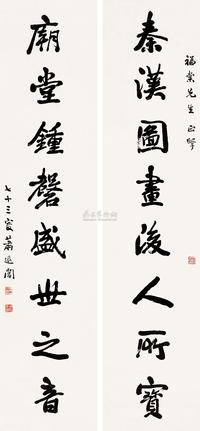 福棠先生正擘
秦漢圖畫後人所寶
廟堂鍾磬盛世之音
七十三叟蕭退闇